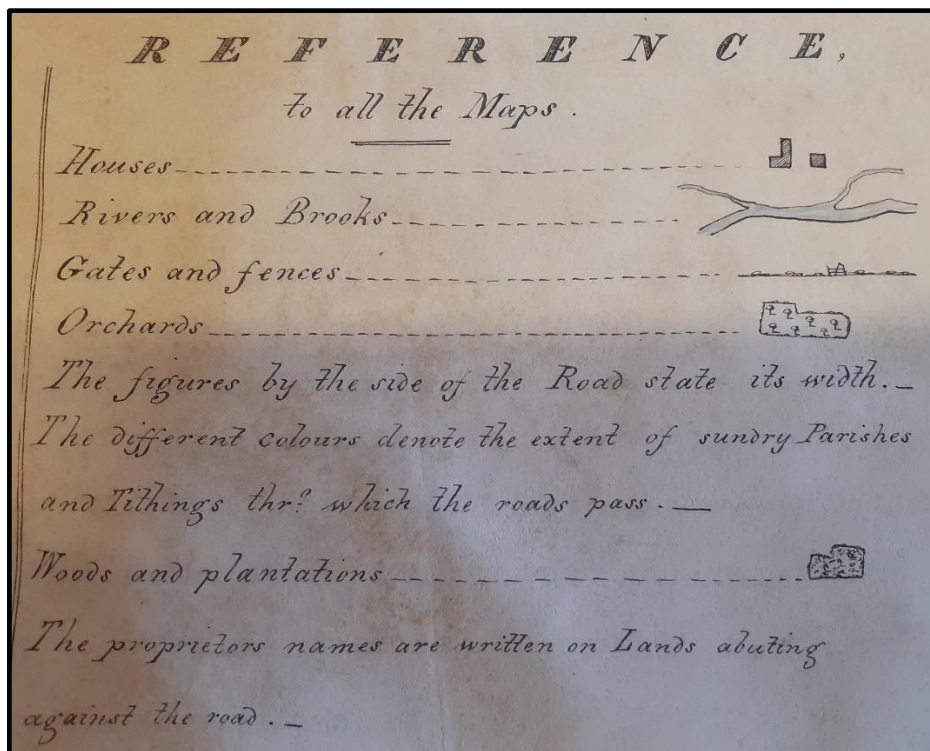 REFERENCE,
to all the Maps.
Houses
Rivers and Brooks
Gates and fences
Orchards
The figures by the side of the Road state its width.
The different colours denote the extent of sundry Parishes
and Tithings thr? which the roads pass.
Woods and plantations
The proprietors names are written on Lands abuting
against the road.